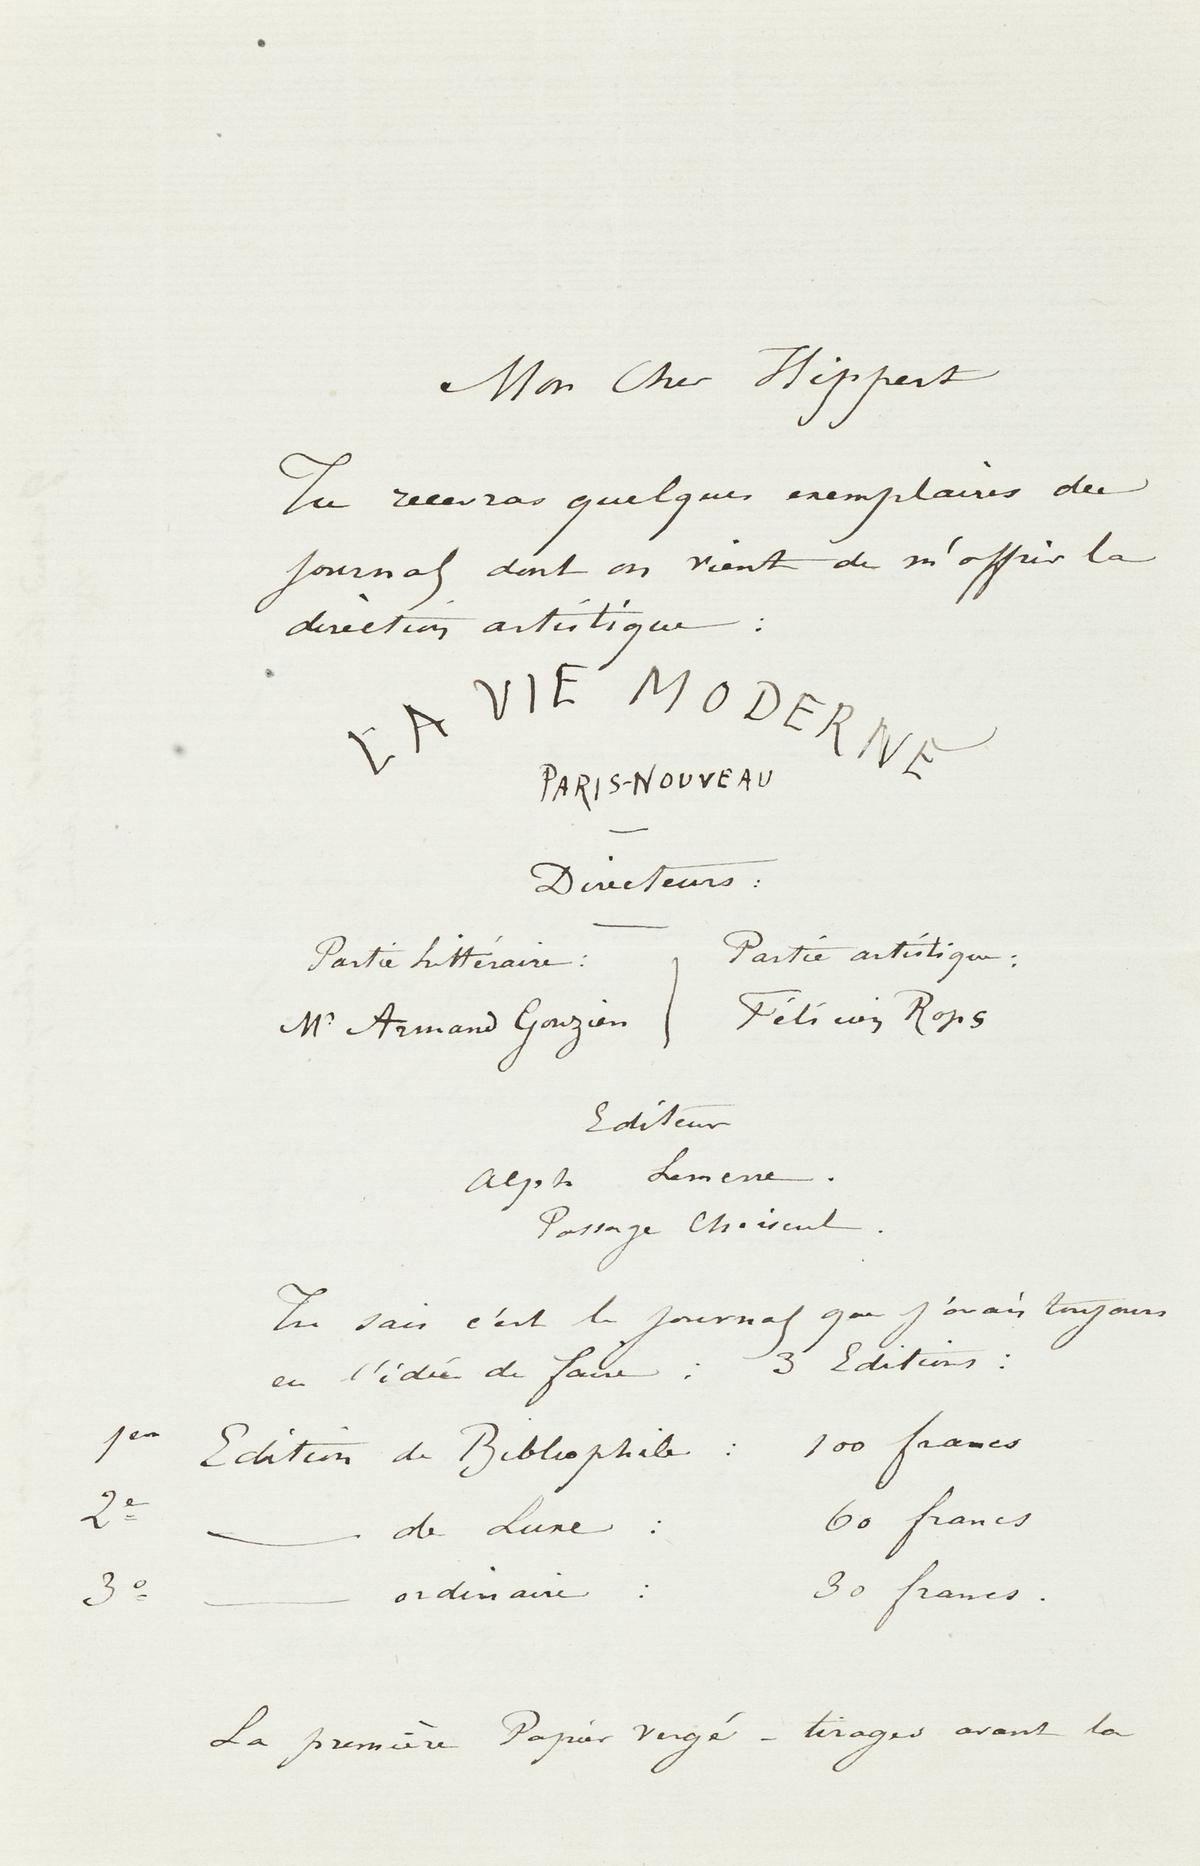 Mon Cher Hippert
Tu recevras quelques exemplaires du
journal dont on vient de m'offrir la
direction artistique :
LA VIE MODERNE
PARIS-NOUVEAU
Directeurs :
Partie littéraire : Partie artistique :
Mr Armand Gouzien Félicien Rops
Editeur
Alph Lemerre .
Passage Choiseul .
Tu sais c'est le journal que j'avais toujours
eu l'idée de faire : 3 Editions :
1ere Edition de Bibliophile : 100 francs
2e — de Luxe : 60 francs
3e — ordinaire : 30 francs .
La première Papier vergé - tirages avant la